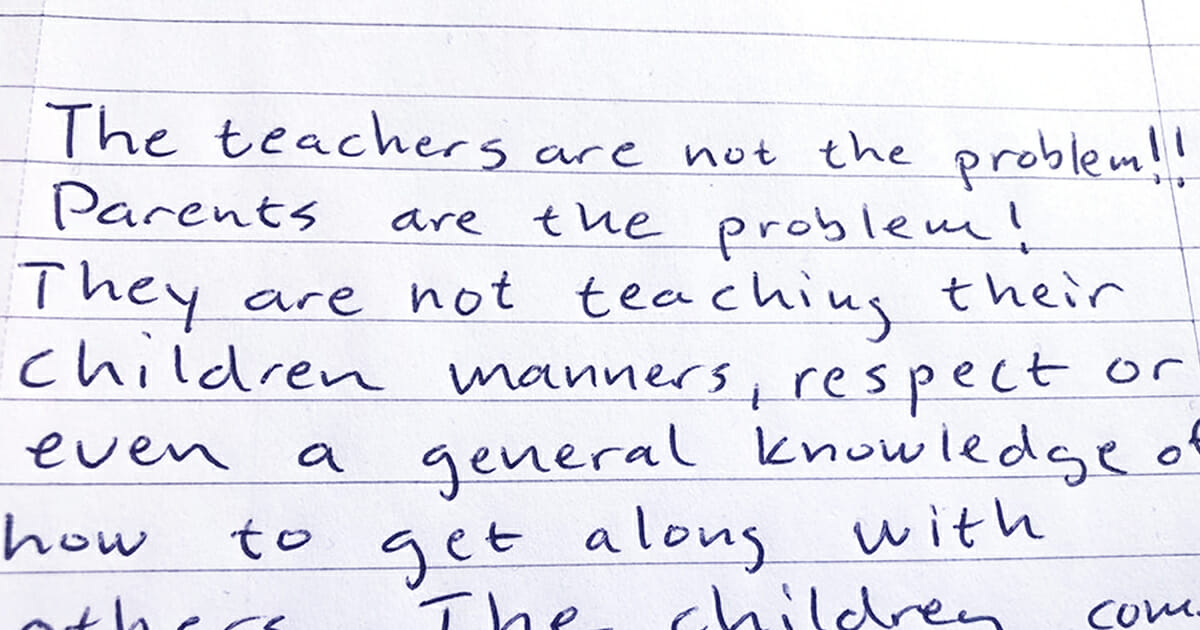 The teachers are not the problem!!
Parents are the problem!
They are not teaching their
children manners, respect or
even a general knowledge of
how to get along with
others. The children